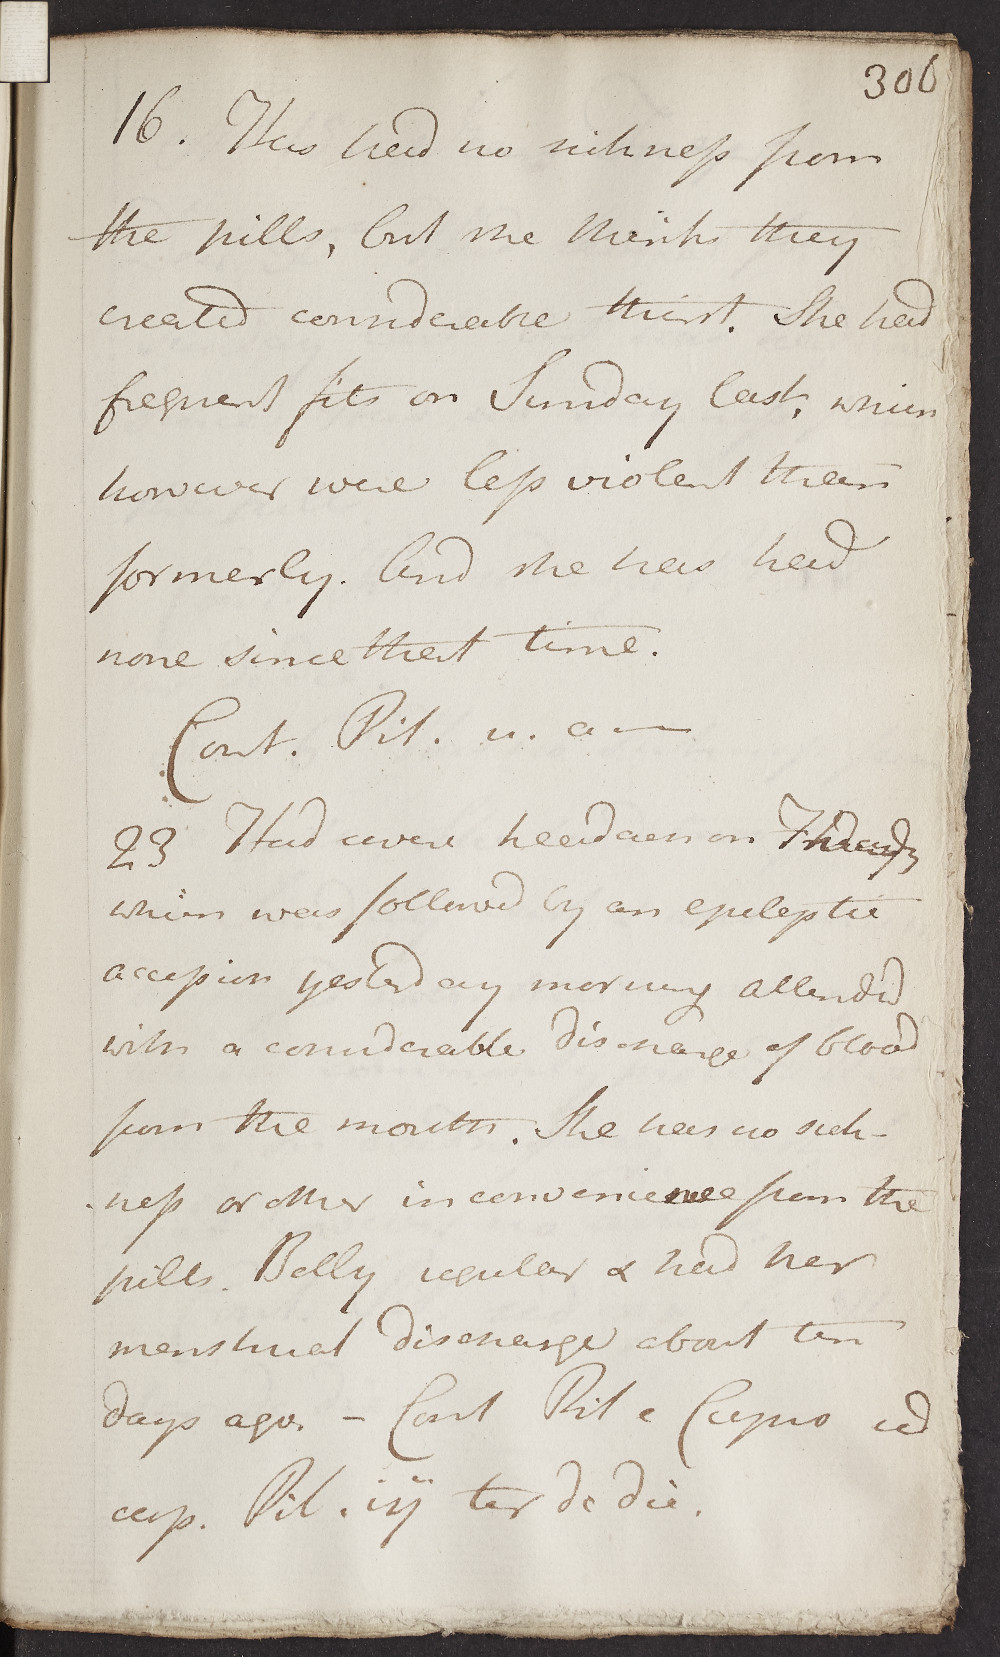 306
16. Has had no sickness from
the pills, but she thinks they
created considerable thirst. She had
frequent fits on Sunday last, which
however were less violent than
formerly. And she has had
none since that time.
Cont. Pil. u. a
23 Had severe headach on
which was followed by an epileptic
accession yesterday morning attended
with a considerable discharge of blood
from the mouth. She has no sick-
ness or other inconvenience from the
pills. Belly regular & had her
menstrual discharge about ten
days ago. – Cont Pil e Cupro ad
cap. Pil. iij ter de die.